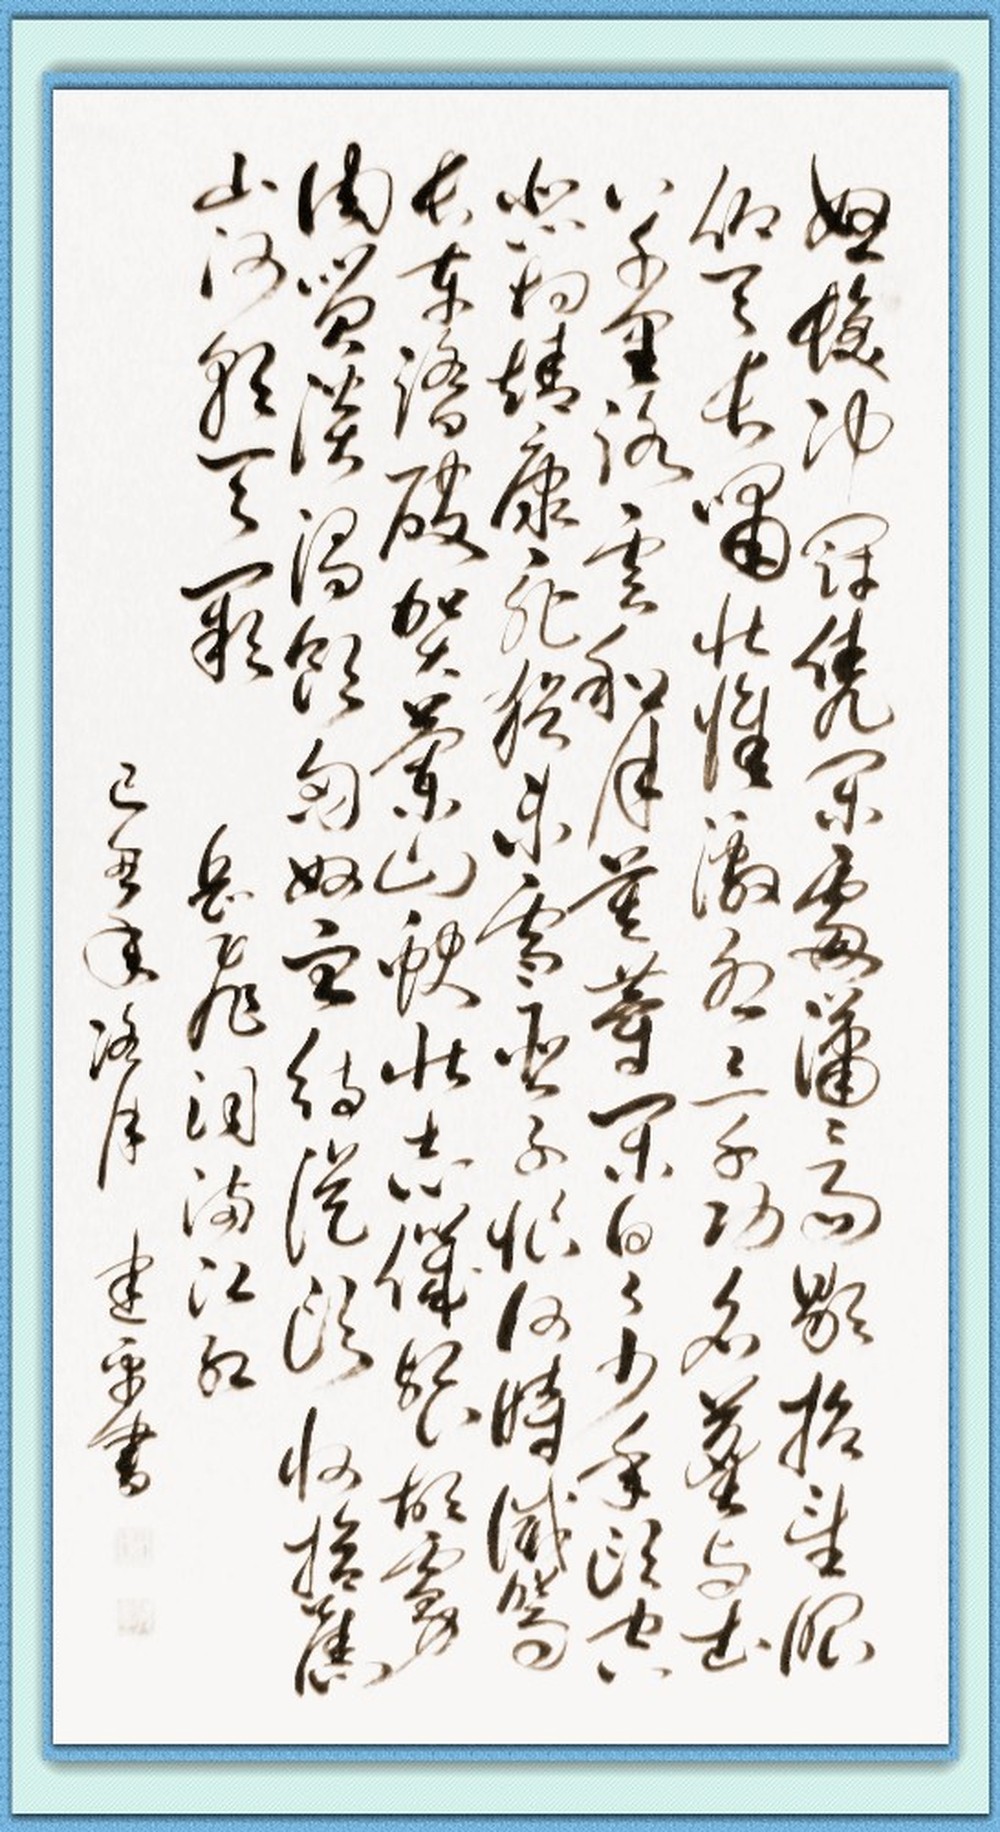 怒髮冲冠凭闌處瀟〻雨歇抬望眼
仰天長嘯壯懷激烈三千功名塵與土
八千里路雲和月莫等閑白了少年頭空
悲切靖康恥猶未雪臣子恨何時滅駕
長車踏破賀蘭山缺壯志饑餐胡虜
肉笑談渴飲匈奴血待從頭收拾舊
山河朝天闕 岳飛詞滿江紅
己丑年涂月 建平書